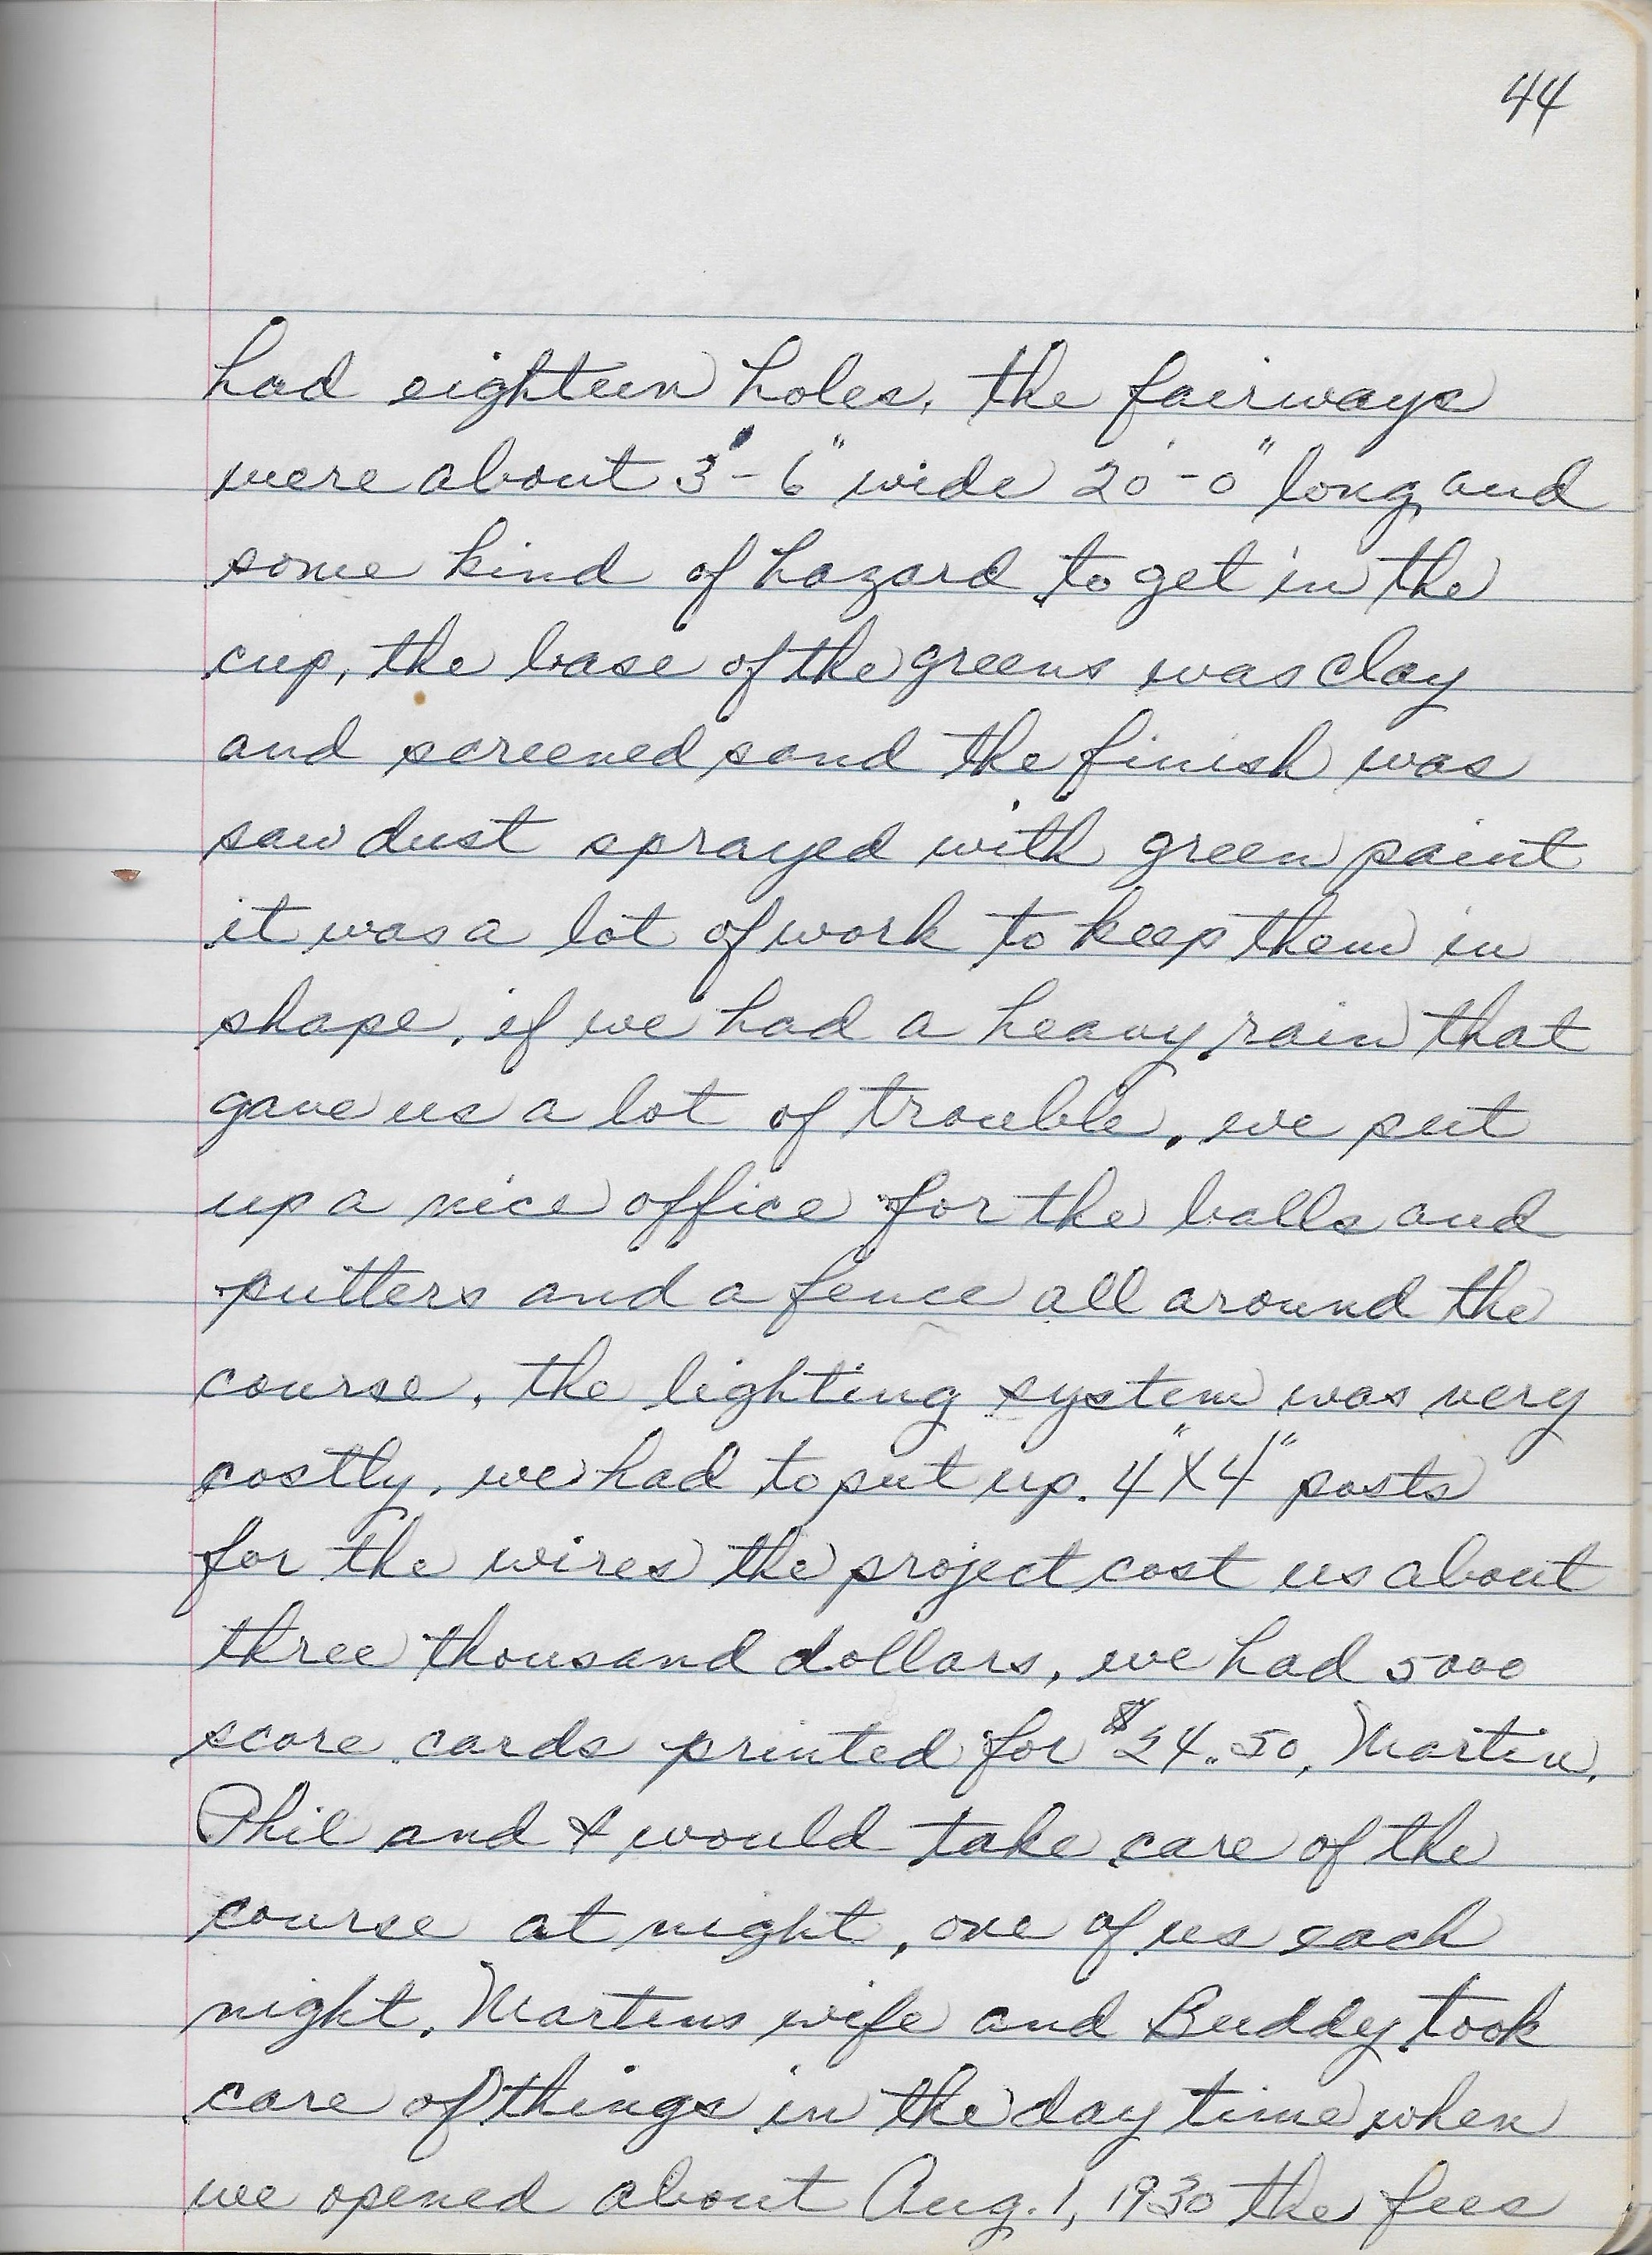 44
had eighteen holes, the fairways
were about 3'-6" wide 20'-0" long and
some kind of hazard to get in the
cup, the base of the greens was clay
and screened sand the finish was
saw dust sprayed with green paint
it was a lot of work to keep them in
shape, if we had a heavy rain that
gave us a lot of trouble, we put
up a nice office for the balls and
putters and a fence all around the
course, the lighting system was very
costly, we had to put up. 4"X4" posts
for the wires the project cost us about
three thousand dollars, we had 5000
score cards printed for $24.50, Martin,
Phil and I would take care of the
course at night, one of us each
night, Martins wife and Buddy took
care of things in the day time when
we opened about Aug. 1, 1930 the fees